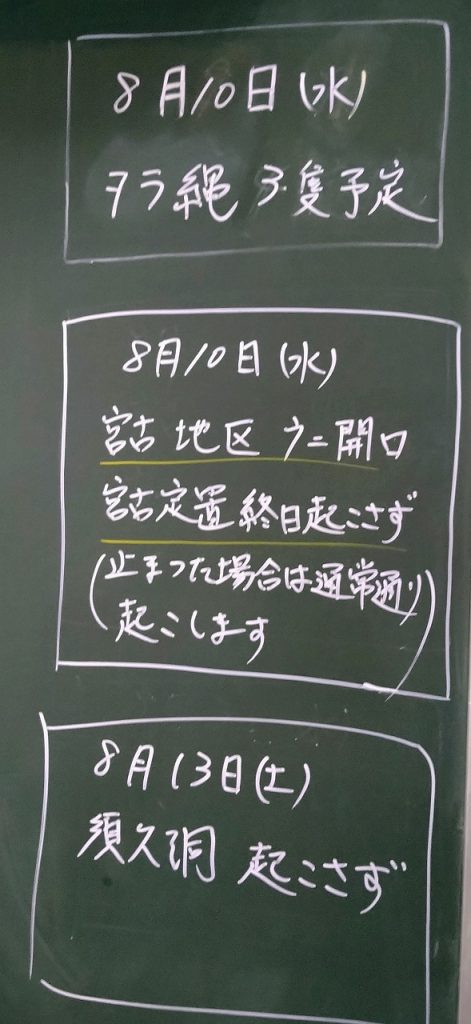 8月10日(水)
タラ縄 3隻予定
8月10日(水)
宮古地区 ウニ開口
宮古定置終日起こさず
(止まった場合は通常通り
起こします)
8月13日(土)
須久洞 起こさず